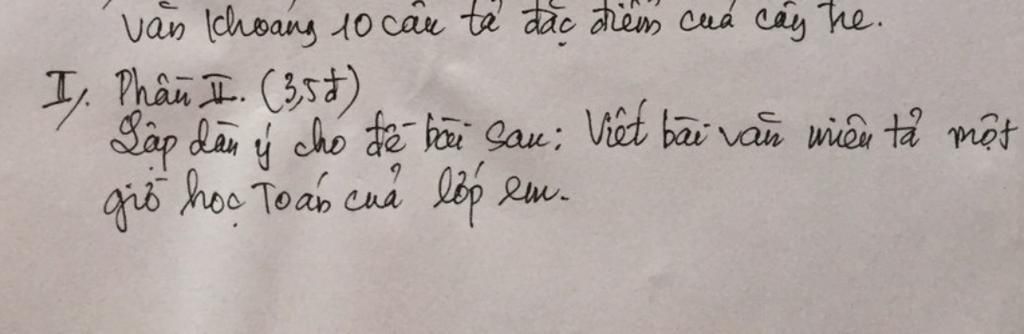 văn khoảng 10 câu tả đặc điểm của cây tre.
II/. Phần II. (3,5đ)
Lập dàn ý cho đề bài sau: Viết bài văn miêu tả một
giờ học Toán của lớp em.